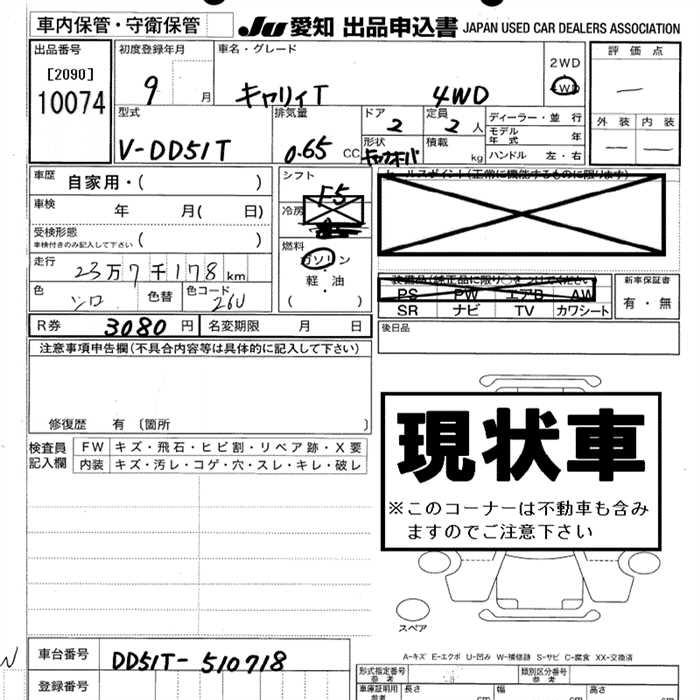 車内保管・守衛保管
JU 愛知 出品申込書 JAPAN USED CAR DEALERS ASSOCIATION
出品番号
[2090]
10074
初度登録年月
9 月
車名・グレード
キャリィT 4WD
2WD
4WD
評価点
―
外装 内装
― ―
型式
V-DD51T
排気量
0.65 CC
ドア
2
定員
2 人
形状
積載
kg
ディーラー・並行
モデル年式 年
ハンドル 左・右
車歴 自家用・( )
車検 年 月( 日)
受検形態
車検付きのみ記入して下さい ( )
走行 23万7千178km
色 シロ 色替 色コード 26U
シフト
F5
冷房
燃料
ガソリン
・
軽・油
( )
セールスポイント(正常に機能するものに限ります)
装備品(純正品に限り○をつけてください)
PS PW エアB AW
SR ナビ TV カワシート
新車保証書
有・無
R券 3080 円 名変期限 月 日
後日品
注意事項申告欄(不具合内容等は具体的に記入して下さい)
修復歴 有 〔箇所 〕
検査員記入欄
FW キズ・飛石・ヒビ割・リペア跡・X要
内装 キズ・汚レ・コゲ・穴・スレ・キレ・破レ
現状車
※このコーナーは不動車も含みますのでご注意下さい
スペア
A-キズ E-エクボ U-凹み W-補修跡 S-サビ C-腐食 XX-交換済
N
車台番号 DD51T-510718
登録番号
形式指定番号
参考
類別区分番号
参考
車庫証明用
参考
長さ cm
幅 cm
高さ cm